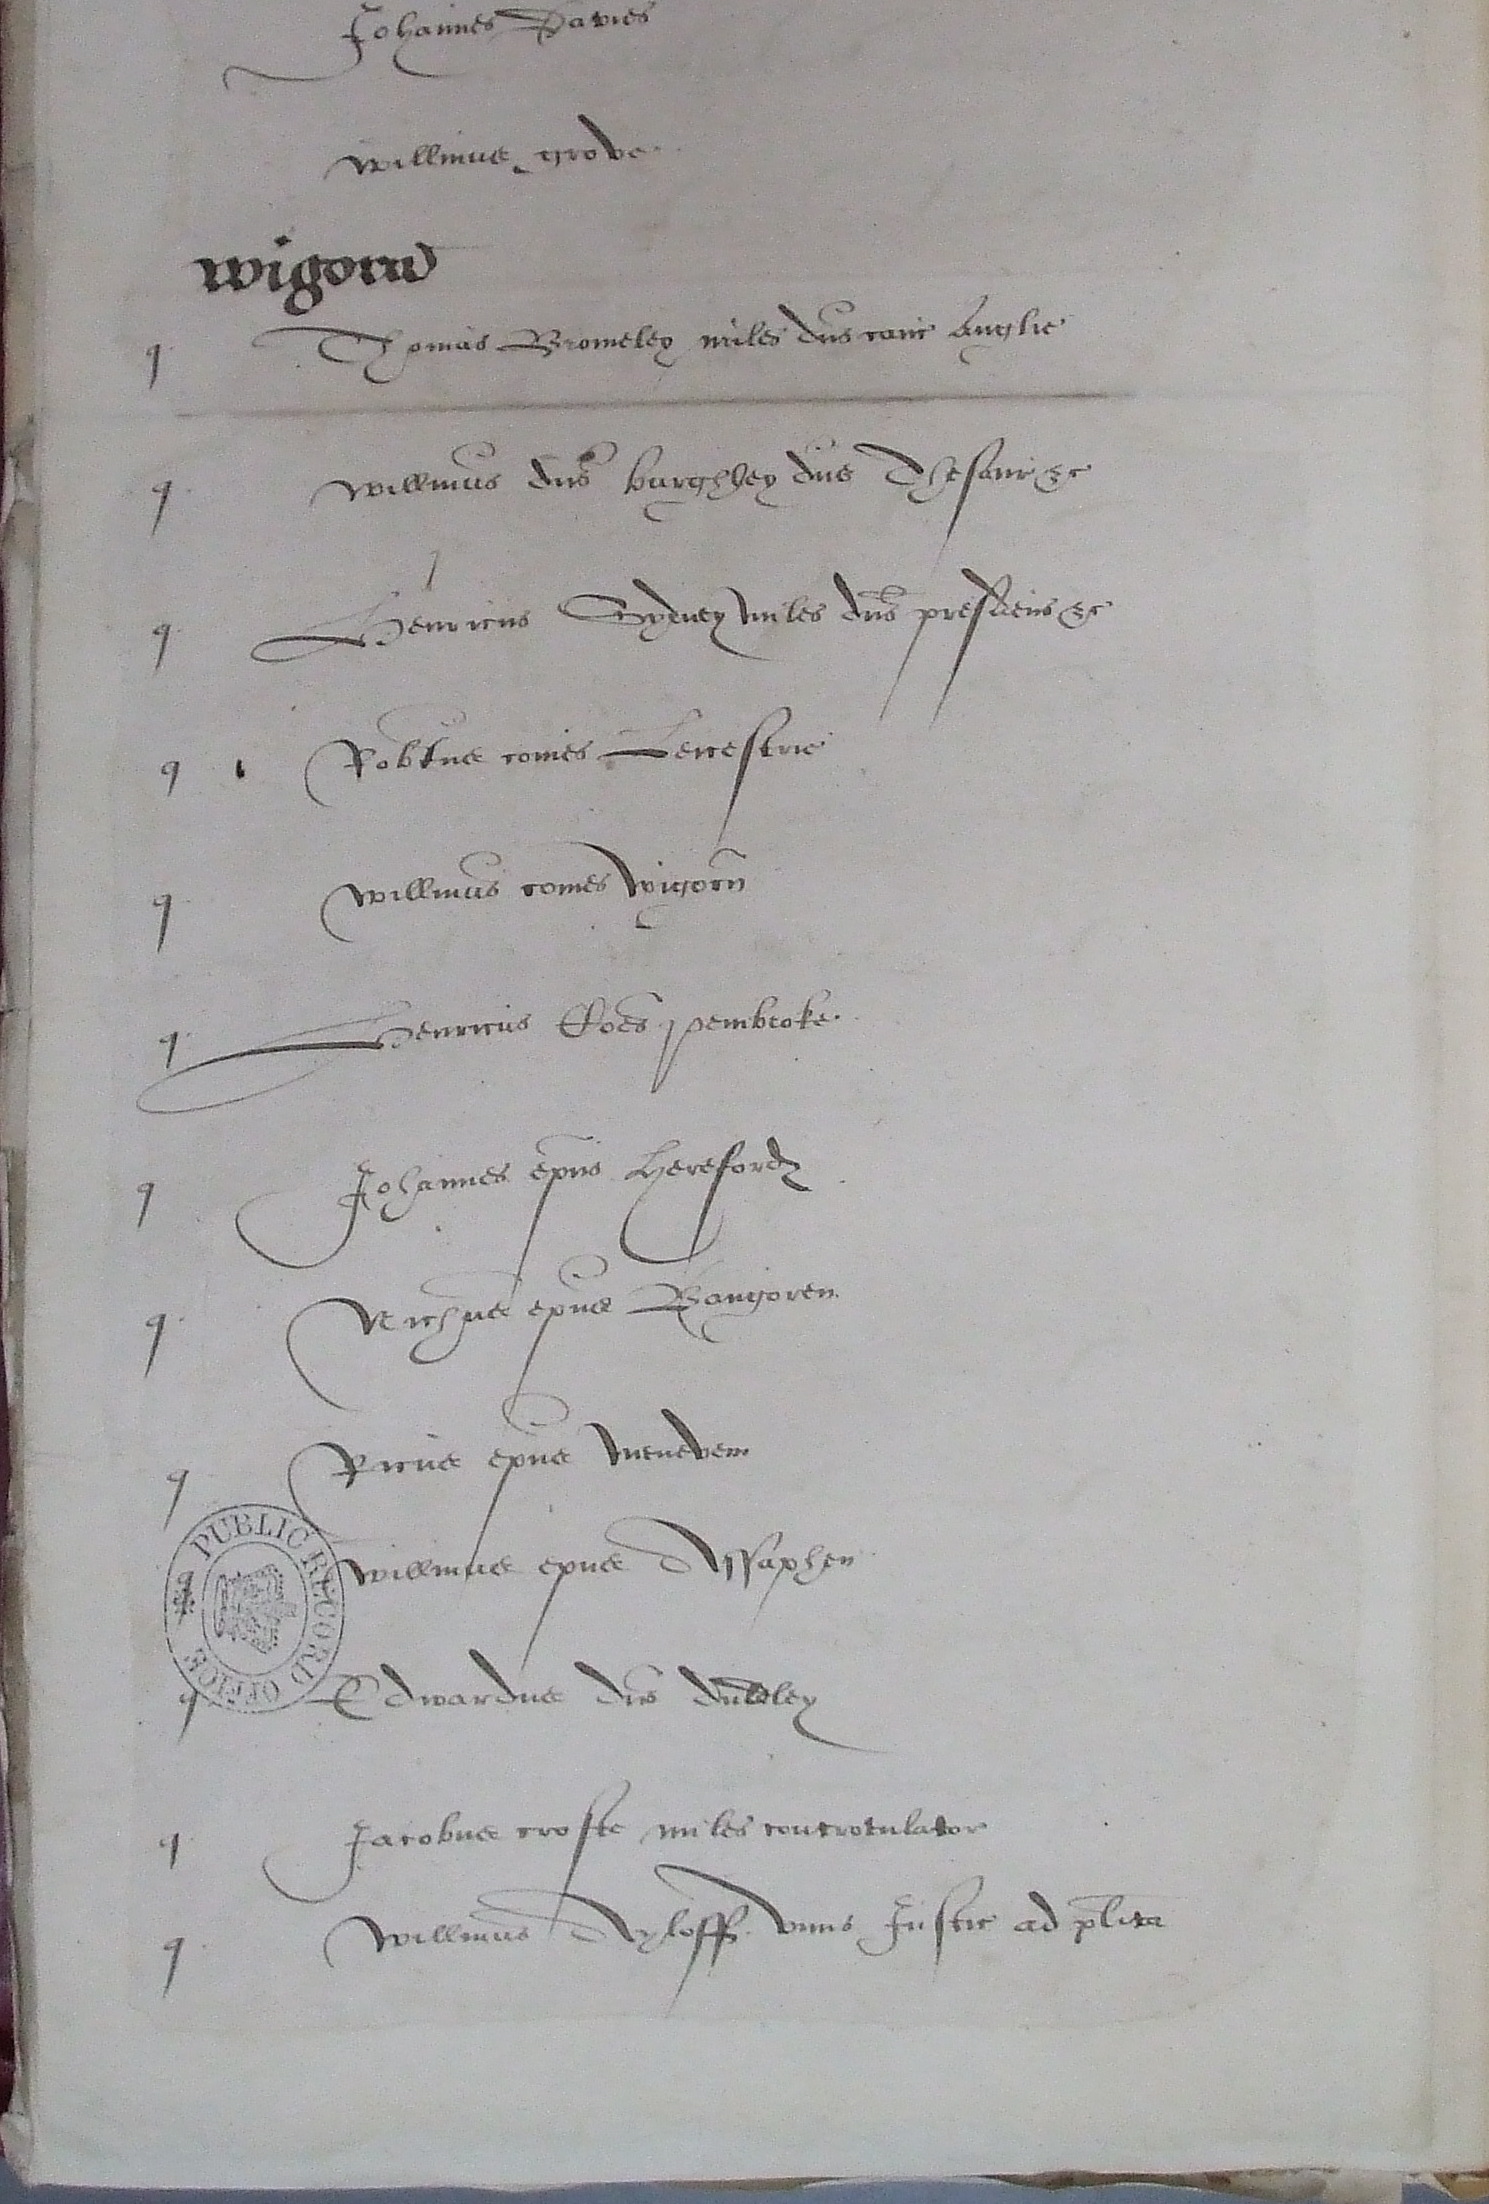 Johannes Davies
Willmus grove
Wigorn
q Thomas Bromeley miles dns canc Anglie
q Willmus dns burghley dns Thesaur &c
q Henricus Sydney miles dns presidens &c
q Robtus comes Leicestrie
q Willmus comes Wigorn
q Henricus Coes pembroke
q Johannes epus Hereford
q Nichus epus Bangoren
q Ricus epus meneven
q Willmus epus Assaphen
q Edwardus dns duddley
q Jacobus crofte miles controtulator
q Willmus Ayloff vnus Justic ad plita
PUBLIC RECORD OFFICE